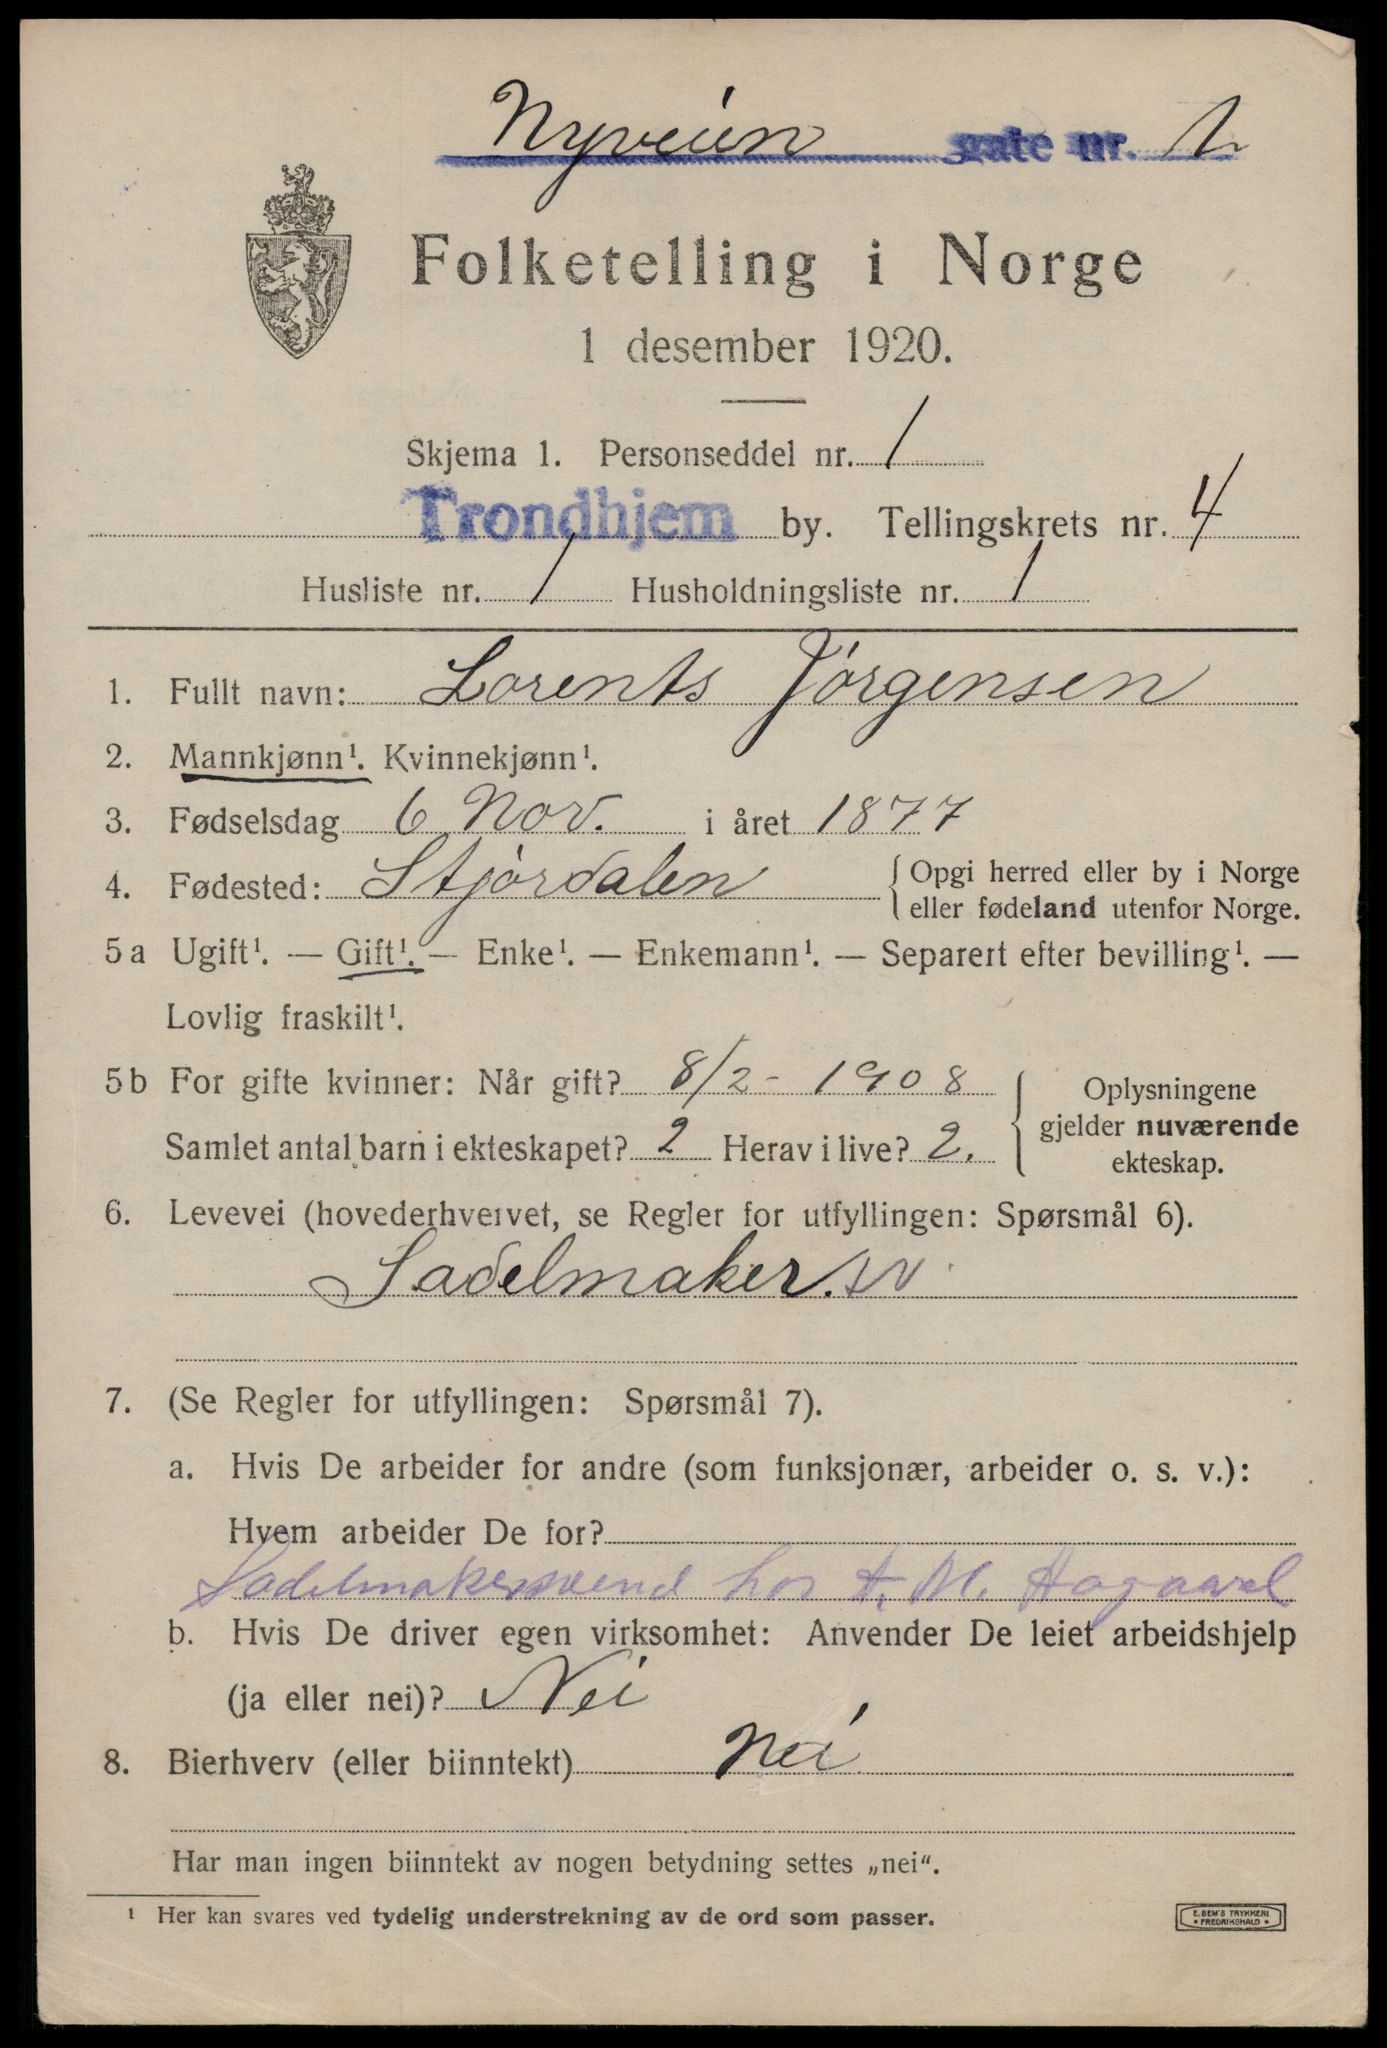 Nyveien gate nr. 1
Folketelling i Norge
1 desember 1920.
Skjema 1. Personseddel nr. 1
Trondhjem by. Tellingskrets nr. 4
Husliste nr. 1 Husholdningsliste nr. 1
1. Fullt navn: Lorents Jörgensen
2. Mannkjønn¹. Kvinnekjønn¹.
3. Fødselsdag 6 Nov. i året 1877
4. Fødested: Stjórdalen { Opgi herred eller by i Norge
eller fødeland utenfor Norge.
5a Ugift¹. — Gift¹. — Enke¹. — Enkemann¹. — Separert efter bevilling¹. —
Lovlig fraskilt¹.
5b For gifte kvinner: Når gift? 8/2 - 1908
Samlet antal barn i ekteskapet? 2 Herav i live? 2.
{ Oplysningene
gjelder nuværende
ekteskap.
6. Levevei (hovederhvervet, se Regler for utfyllingen: Spørsmål 6).
Sadelmaker. sv.
7. (Se Regler for utfyllingen: Spørsmål 7).
a. Hvis De arbeider for andre (som funksjonær, arbeider o. s. v.):
Hvem arbeider De for?
Sadelmakersvend hos A. M. Hagaard
b. Hvis De driver egen virksomhet: Anvender De leiet arbeidshjelp
(ja eller nei)? Nei
8. Bierhverv (eller biinntekt) Nei
Har man ingen biinntekt av nogen betydning settes „nei“.
¹ Her kan svares ved tydelig understrekning av de ord som passer.
E. SEM'S TRYKKERI
• FREDRIKSHALD •